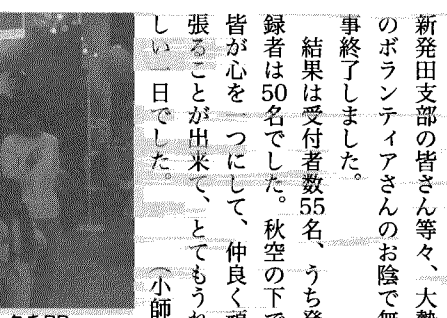 新発田支部の皆さん等々、大勢
のボランティアさんのお陰で無
事終了しました。
結果は受付者数55名、うち登
録者は50名でした。秋空の下で
皆が心を一つにして、仲良く頑
張ることが出来て、とてもうれ
しい一日でした。
(小師